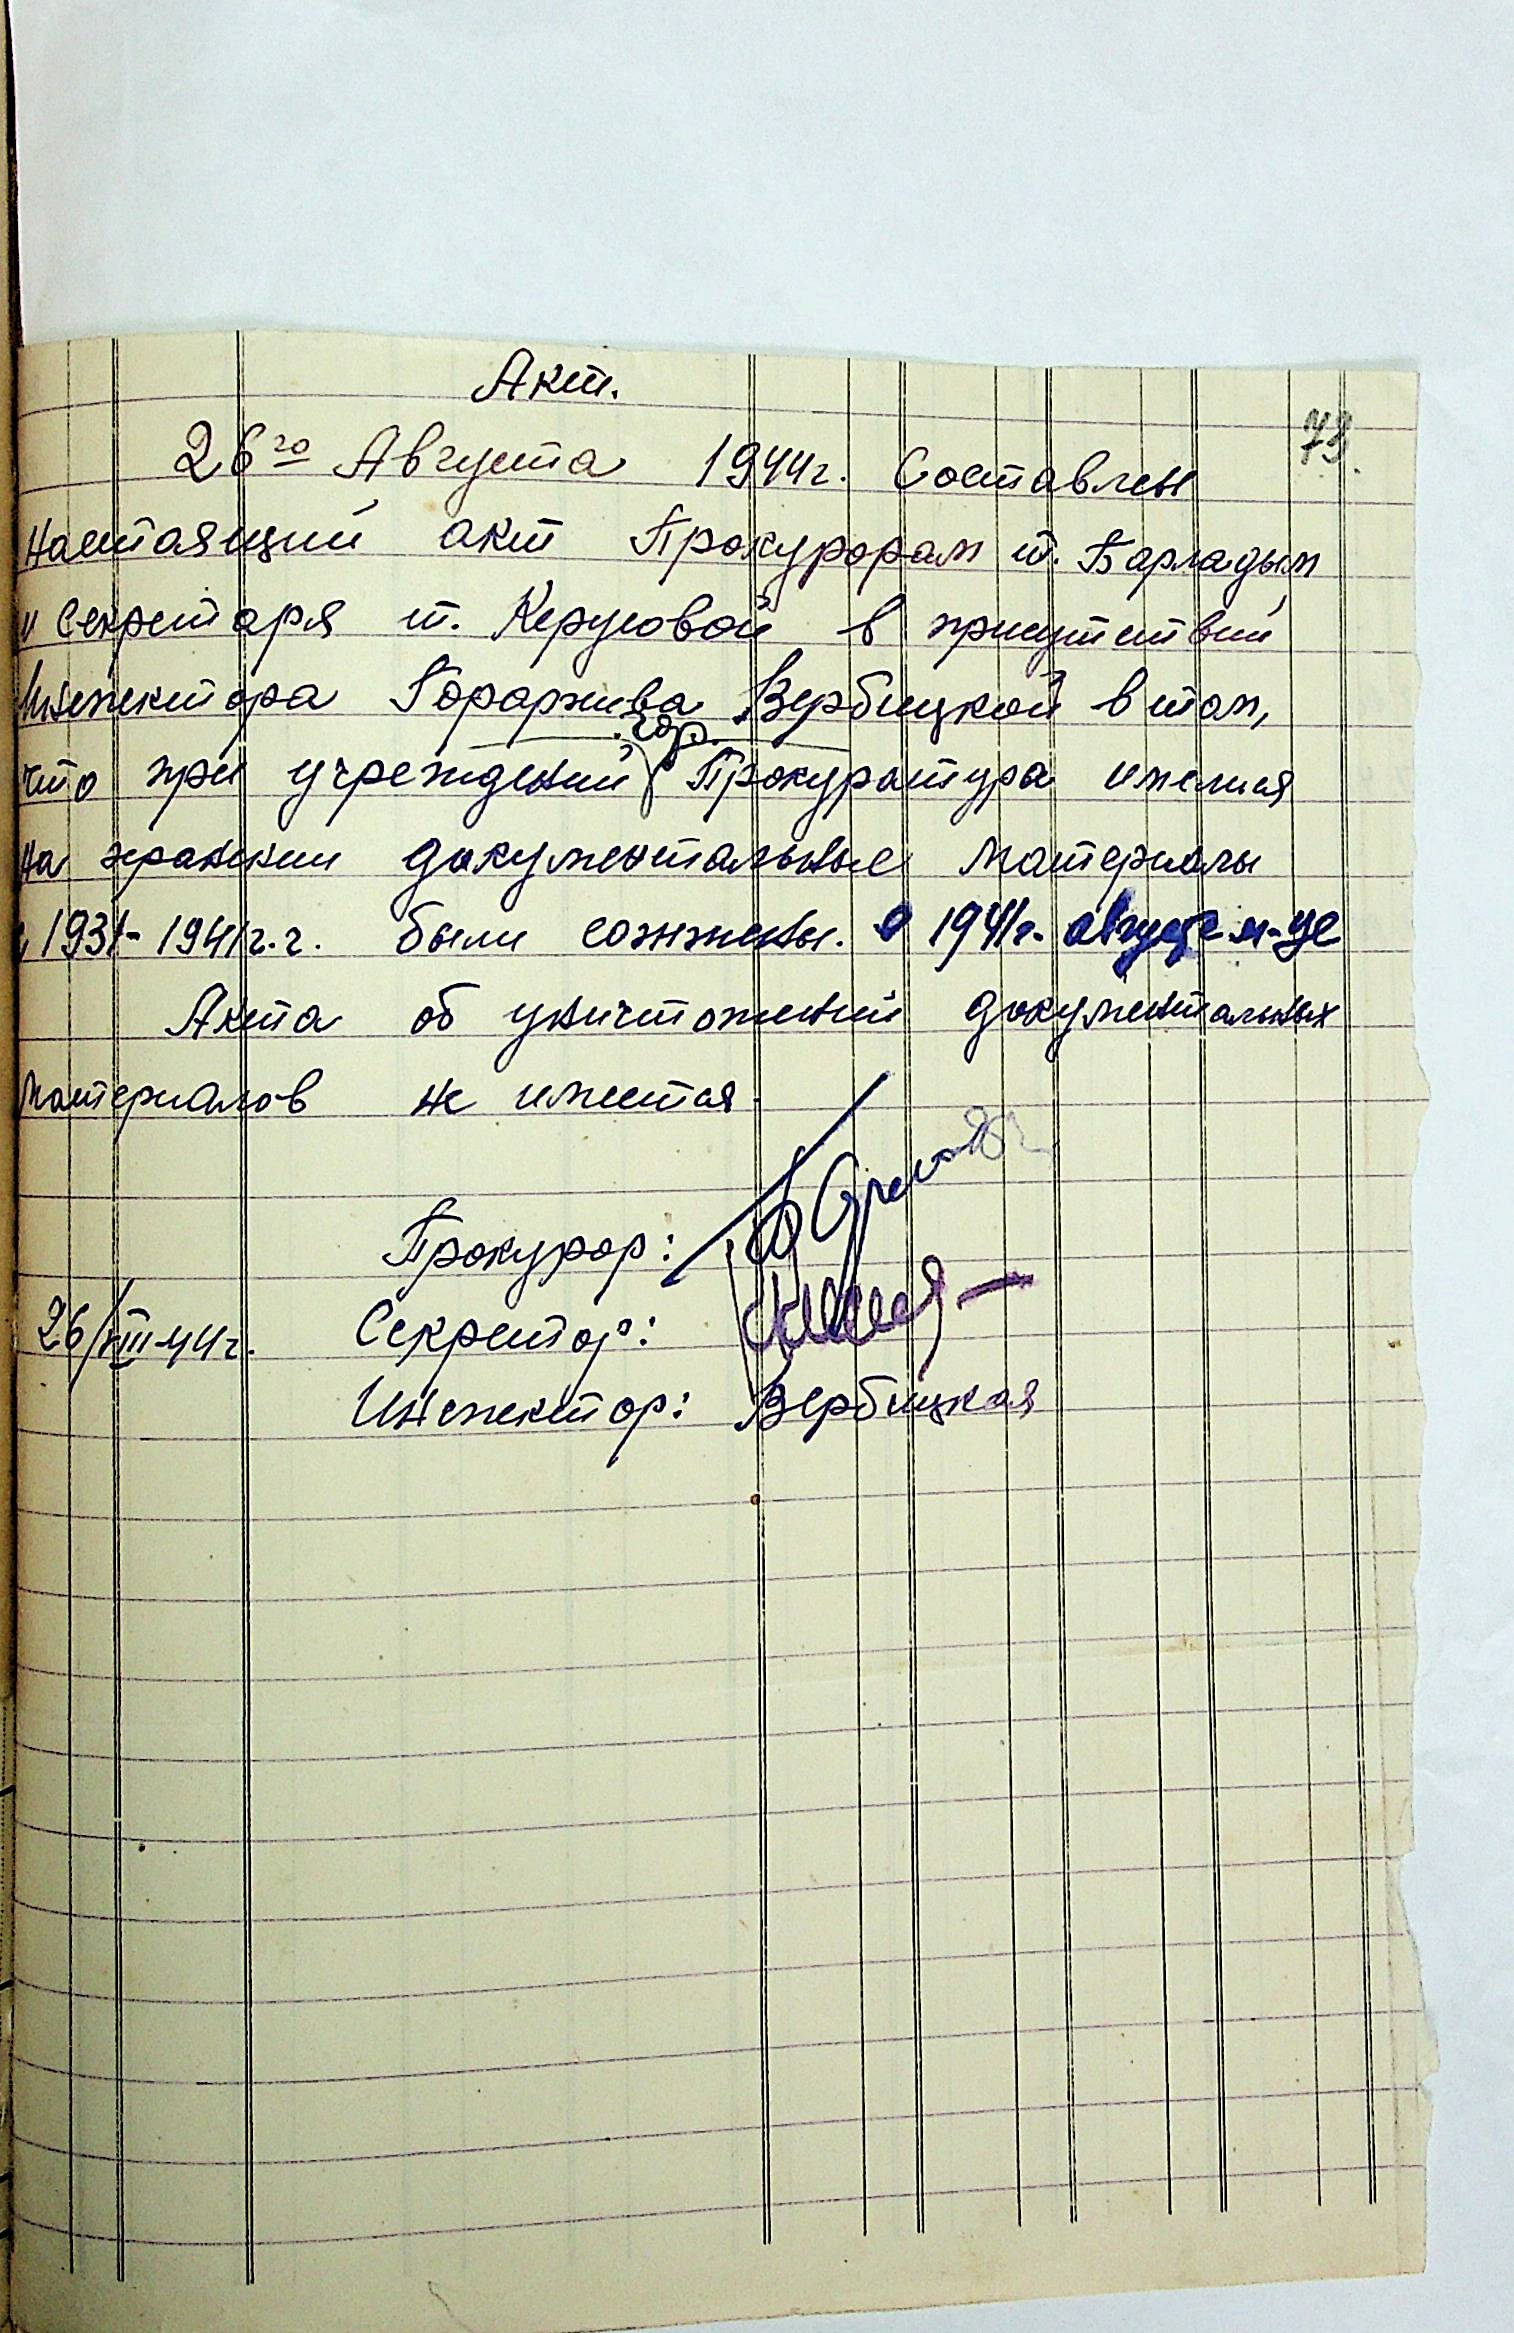 Акт.
73.
26го Августа 1944г. Составлен
настаящий акт Прокурорам т. Барладым
и Секретаря т. Керуовой в присутствии
Инспектора Горархива Вербицкой в том,
гор.
что при учреждений Прокуратура имелися
на хранении документальные материалы
с 1931-1941г.г. были сожжены. в 1941г. августе м-це
Акта об уничтожений документальных
материалов не имеется.
Прокурор:
26/VIII-44г. Секретор:
Инспектор: Вербицкая